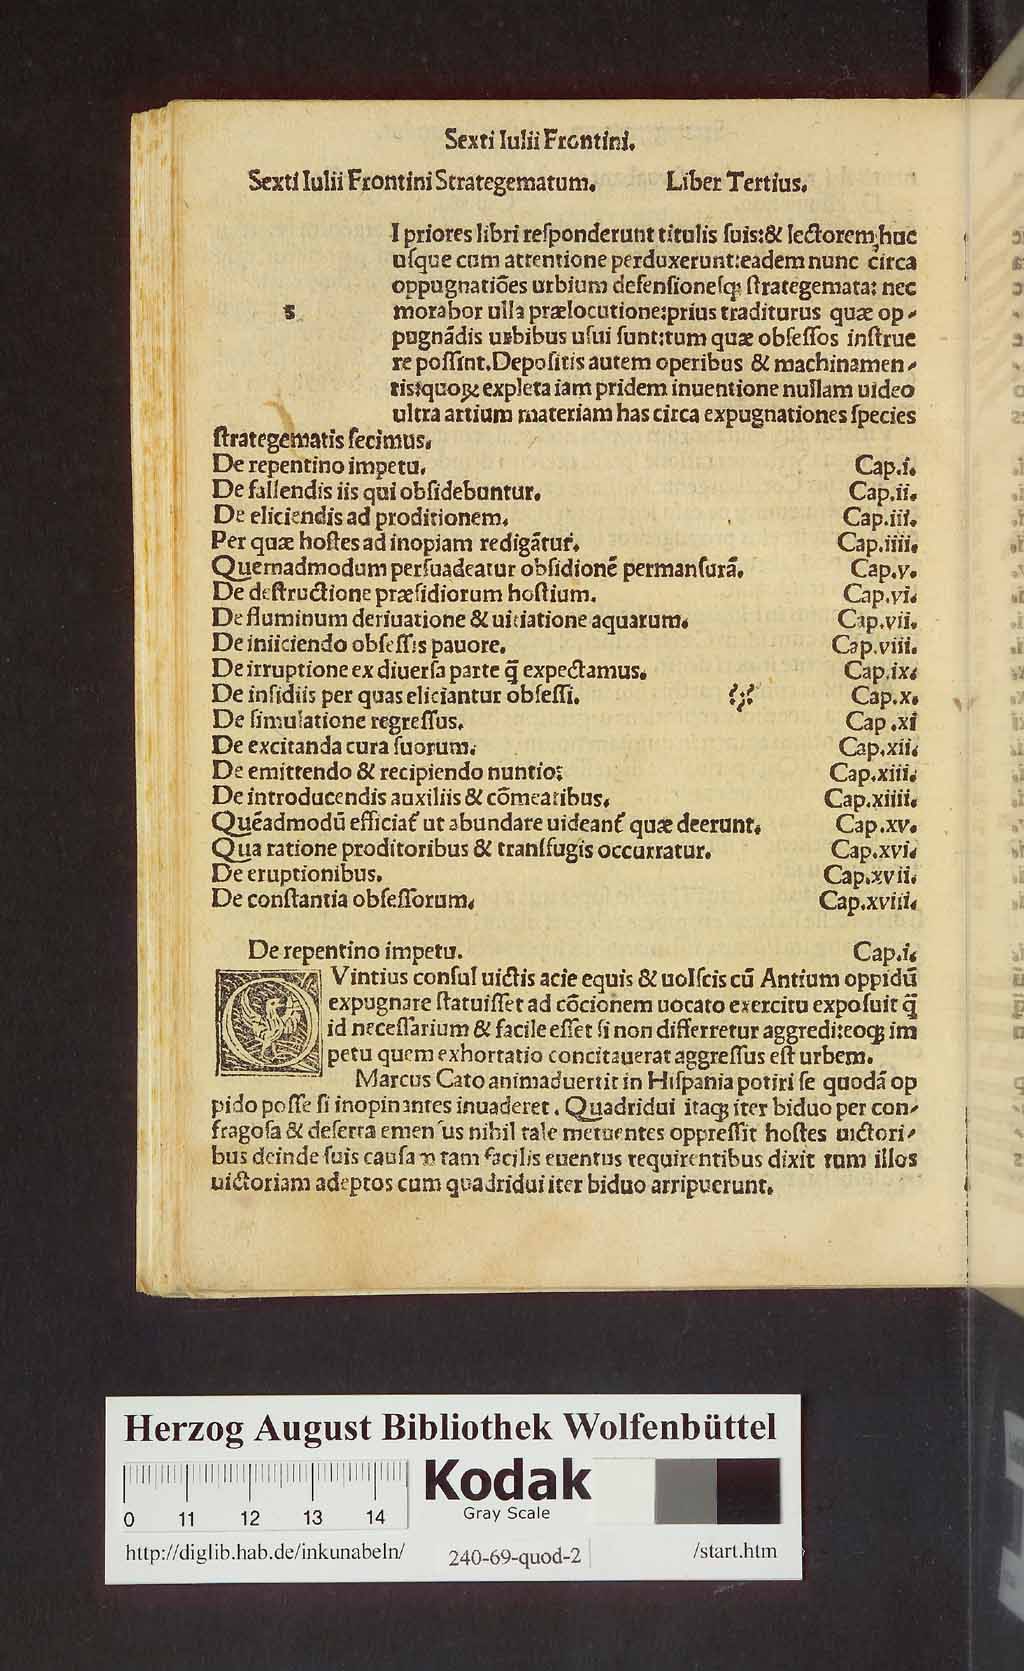 Sexti Iulii Frontini.
Sexti Iulii Frontini Strategematum. Liber Tertius.
I priores libri responderunt titulis suis:& lectorem huc
s usque cum attentione perduxerunt:eadem nunc circa
oppugnatiões urbium defensionesqꝫ strategemata: nec
morabor ulla prælocutione:prius traditurus quæ op-
pugnãdis urbibus usui sunt:tum quæ obsessos instrue
re possint.Depositis autem operibus & machinamen-
tis:quoꝝ expleta iam pridem inuentione nullam uideo
ultra artium materiam has circa expugnationes species
strategematis fecimus.
De repentino impetu. Cap.i.
De fallendis iis qui obsidebuntur. Cap.ii.
De eliciendis ad proditionem. Cap.iii.
Per quæ hostes ad inopiam redigãtur. Cap.iiii.
Quemadmodum persuadeatur obsidionẽ permansurã. Cap.v.
De destructione præsidiorum hostium. Cap.vi.
De fluminum deriuatione & uitiatione aquarum. Cap.vii.
De iniiciendo obsessis pauore. Cap.viii.
De irruptione ex diuersa parte q̃ expectamus. Cap.ix.
De insidiis per quas eliciantur obsessi. Cap.x.
De simulatione regressus. Cap.xi
De excitanda cura suorum. Cap.xii.
De emittendo & recipiendo nuntio: Cap.xiii.
De introducendis auxiliis & cõmeatibus. Cap.xiiii.
Quẽadmodũ efficiat᷑ ut abundare uideant᷑ quæ deerunt. Cap.xv.
Qua ratione proditoribus & transfugis occurratur. Cap.xvi.
De eruptionibus. Cap.xvii.
De constantia obsessorum. Cap.xviii.
De repentino impetu. Cap.i.
QVintius consul uictis acie equis & uolscis cũ Antium oppidũ
expugnare statuisset ad cõcionem uocato exercitu exposuit q̃
id necessarium & facile esset si non differretur aggredi:eoqꝫ im
petu quem exhortatio concitauerat aggressus est urbem.
Marcus Cato animaduertit in Hispania potiri se quodã op
pido posse si inopinantes inuaderet. Quadridui itaqꝫ iter biduo per con-
fragosa & deserta emensus nihil tale metuentes oppressit hostes uictori-
bus deinde suis causam tam facilis euentus requirentibus dixit tum illos
uictoriam adeptos cum quadridui iter biduo arripuerunt.
Herzog August Bibliothek Wolfenbüttel
Kodak
Gray Scale
0 11 12 13 14
http://diglib.hab.de/inkunabeln/ 240-69-quod-2 /start.htm